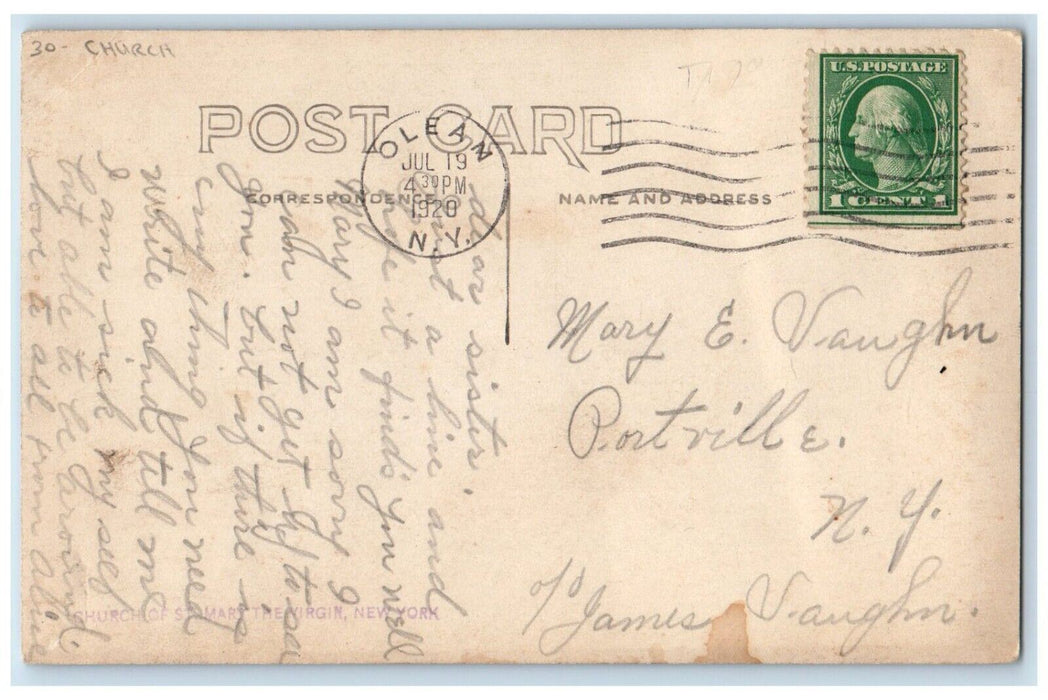 30- CHURCH
POST CARD
U.S. POSTAGE
1 CENT 1
OLEAN
JUL 19
4 30 PM
1920
N.Y.
CORRESPONDENCE
NAME AND ADDRESS
Mary E. Vaughn
Portville.
N. Y.
c/o James Vaughn.
dear sister
Just a line and
hope it finds you well
Mary I am sorry I
can not get by to see
you. but if there is
any thing you need
write and tell me
I am sick my self
but able to be around.
love to all from Aline
CHURCH OF ST. MARY THE VIRGIN, NEW YORK